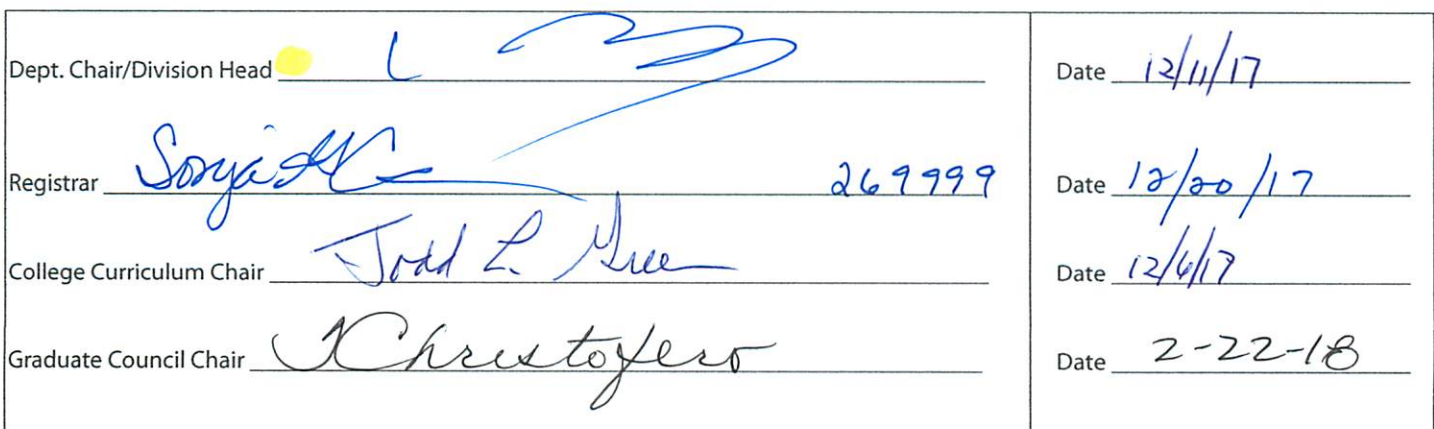 Dept. Chair/Division Head Date 12/11/17
Registrar Sonja 269999 Date 12/20/17
College Curriculum Chair Todd L. Green Date 12/6/17
Graduate Council Chair TChristofero Date 2-22-18